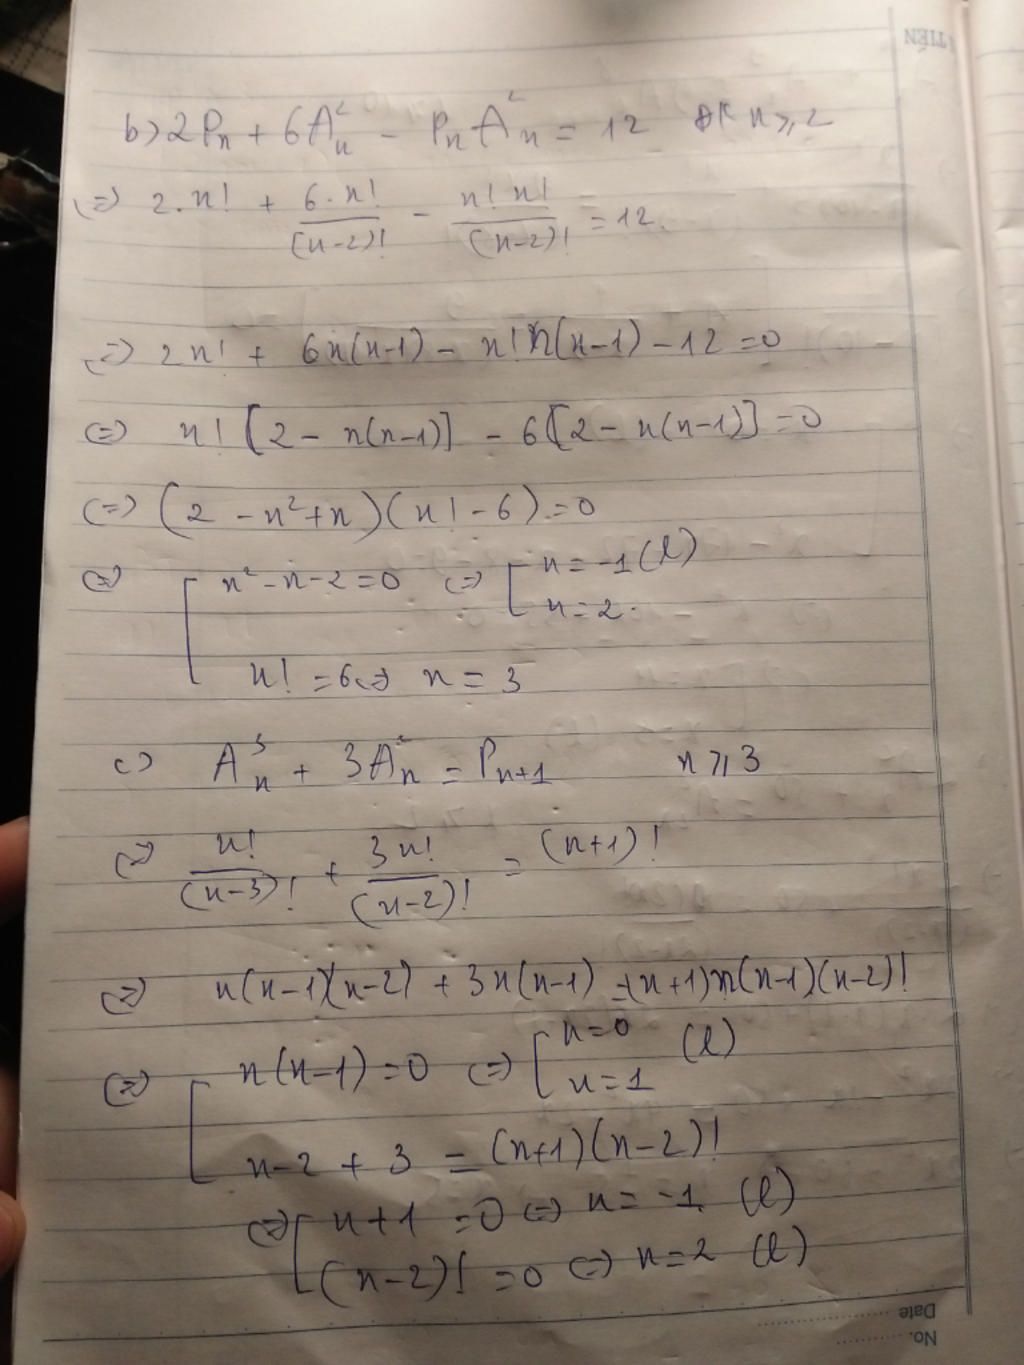 TIẾN
b) 2Pₙ + 6Aₙ² - PₙAₙ² = 12 ĐK n ≥ 2
(=) 2.n! + 6.n!/(n-2)! - n! n!/(n-2)! = 12.
(=) 2n! + 6n(n-1) - n! n(n-1) - 12 = 0
(=) n! [2 - n(n-1)] - 6[2 - n(n-1)] = 0
(=) (2 - n² + n)(n! - 6) = 0
(=) [ n² - n - 2 = 0 (=) [ n = -1 (l)
n = 2.
n! = 6 (=) n = 3
c) Aₙ³ + 3Aₙ² = Pₙ₊₁ n ≥ 3
(=) n!/(n-3)! + 3n!/(n-2)! = (n+1)!
(=) n(n-1)(n-2) + 3n(n-1) = (n+1)n(n-1)(n-2)!
(=) [ n(n-1) = 0 (=) [ n = 0 (l)
n = 1
n-2 + 3 = (n+1)(n-2)!
(=) [ n+1 = 0 (=) n = -1 (l)
(n-2)! = 0 (=) n = 2 (l)
Date
No.